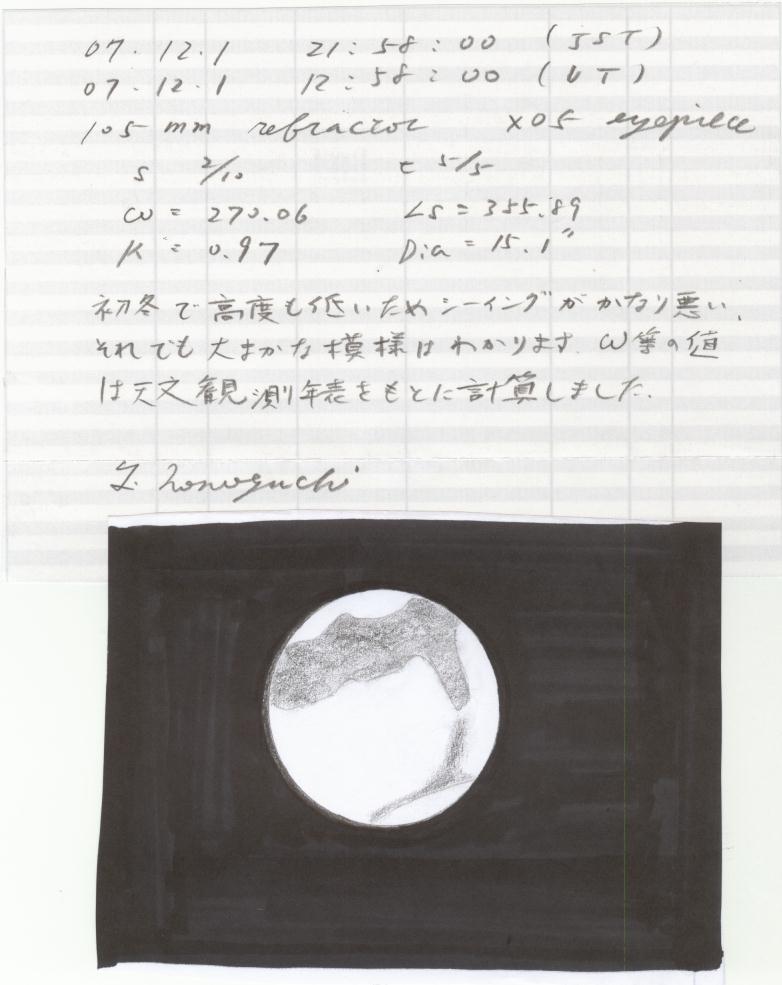 07.12.1 21:58:00 (JST)
07.12.1 12:58:00 (UT)
105 mm refractor ×05 eyepiece
s 2/10 t 5/5
ω = 270.06 Ls = 355.89
k = 0.97 Dia = 15.1"
初冬で高度も低いためシーイングがかなり悪い.
それでも大まかな模様はわかります. ω等の値
は天文観測年表をもとに計算しました.